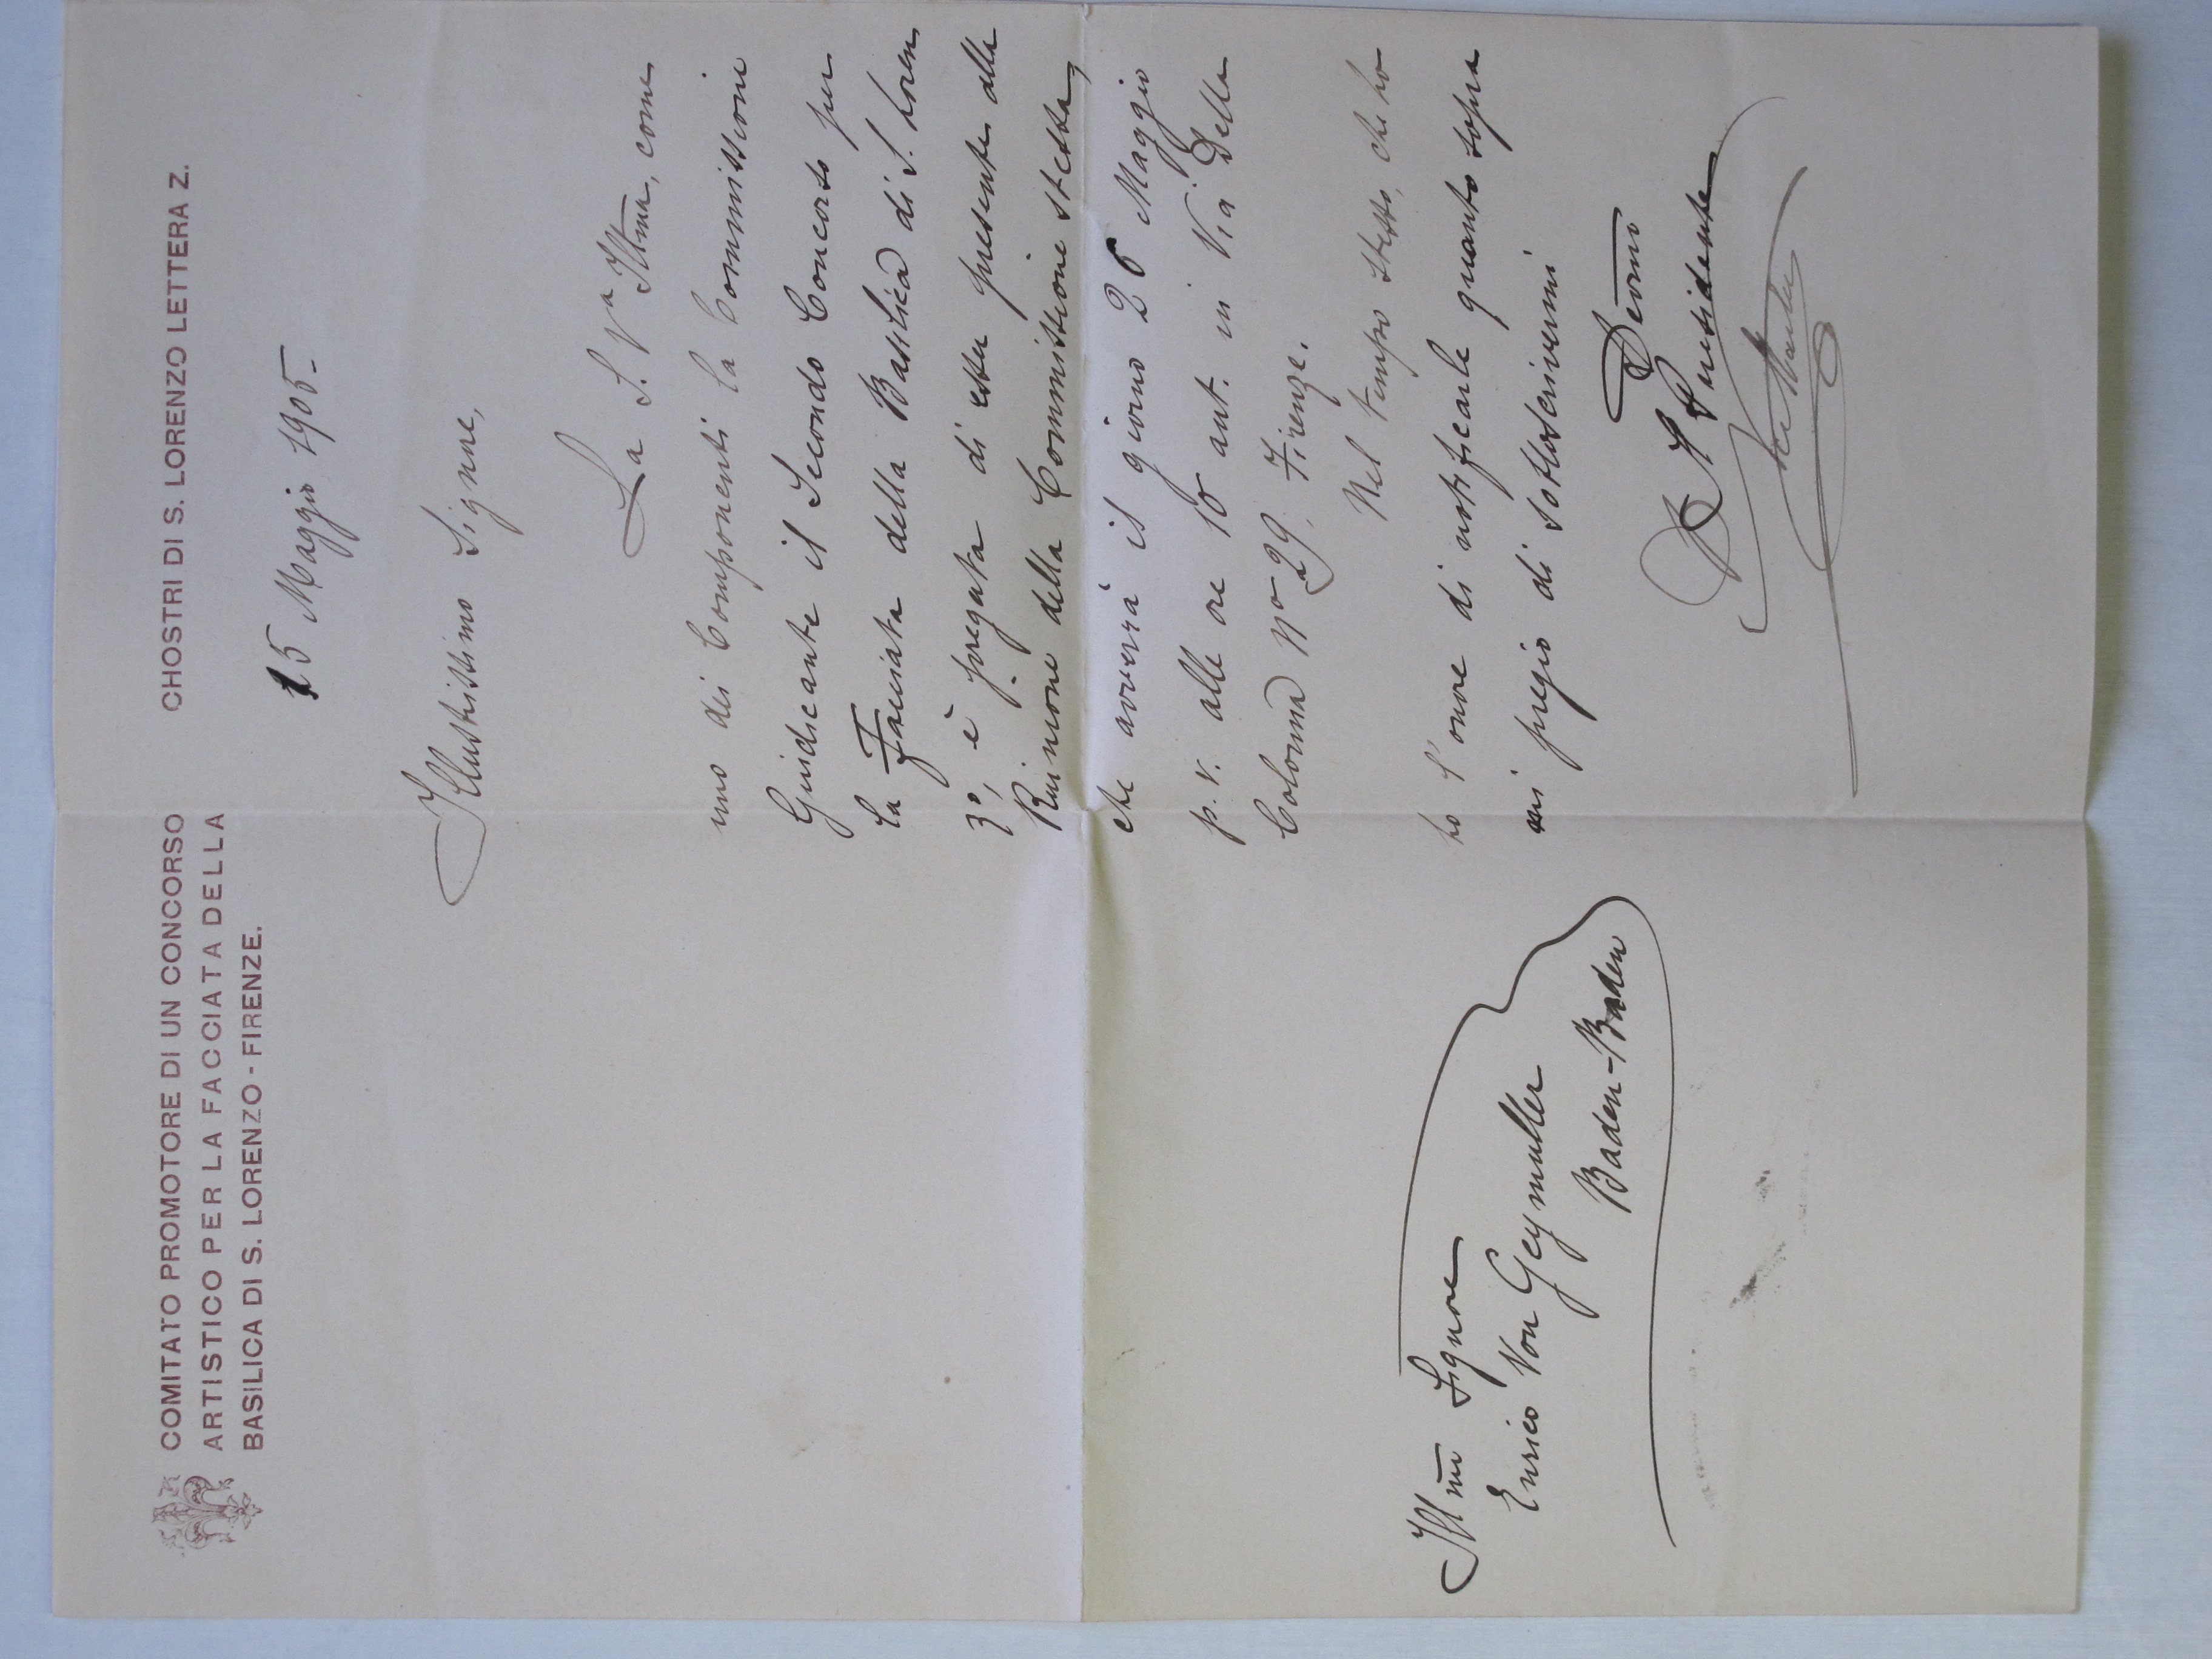 COMITATO PROMOTORE DI UN CONCORSO
ARTISTICO PER LA FACCIATA DELLA
BASILICA DI S. LORENZO - FIRENZE.
CHOSTRI DI S. LORENZO LETTERA Z.
15 Maggio 1905-
Illustrissimo Signore,
La S. Va Illma, come
uno dei Componenti la Commissione
Giudicante il Secondo Concorso per
la Facciata della Basilica di S. Loren
zo, è pregata di esser presente alla
Riunione della Commissione stessa,
che avverrà il giorno 26 Maggio
p. v. alle ore 10 ant. in Via Della
Colonna No 29, Firenze.
Nel tempo stesso, che ho
ho l'onore di notificarle quanto sopra
mi pregio di sottoscrivermi
Devmo
Il Presidente
Illmo Signore
Enrico Von Geymuller
Baden-Baden